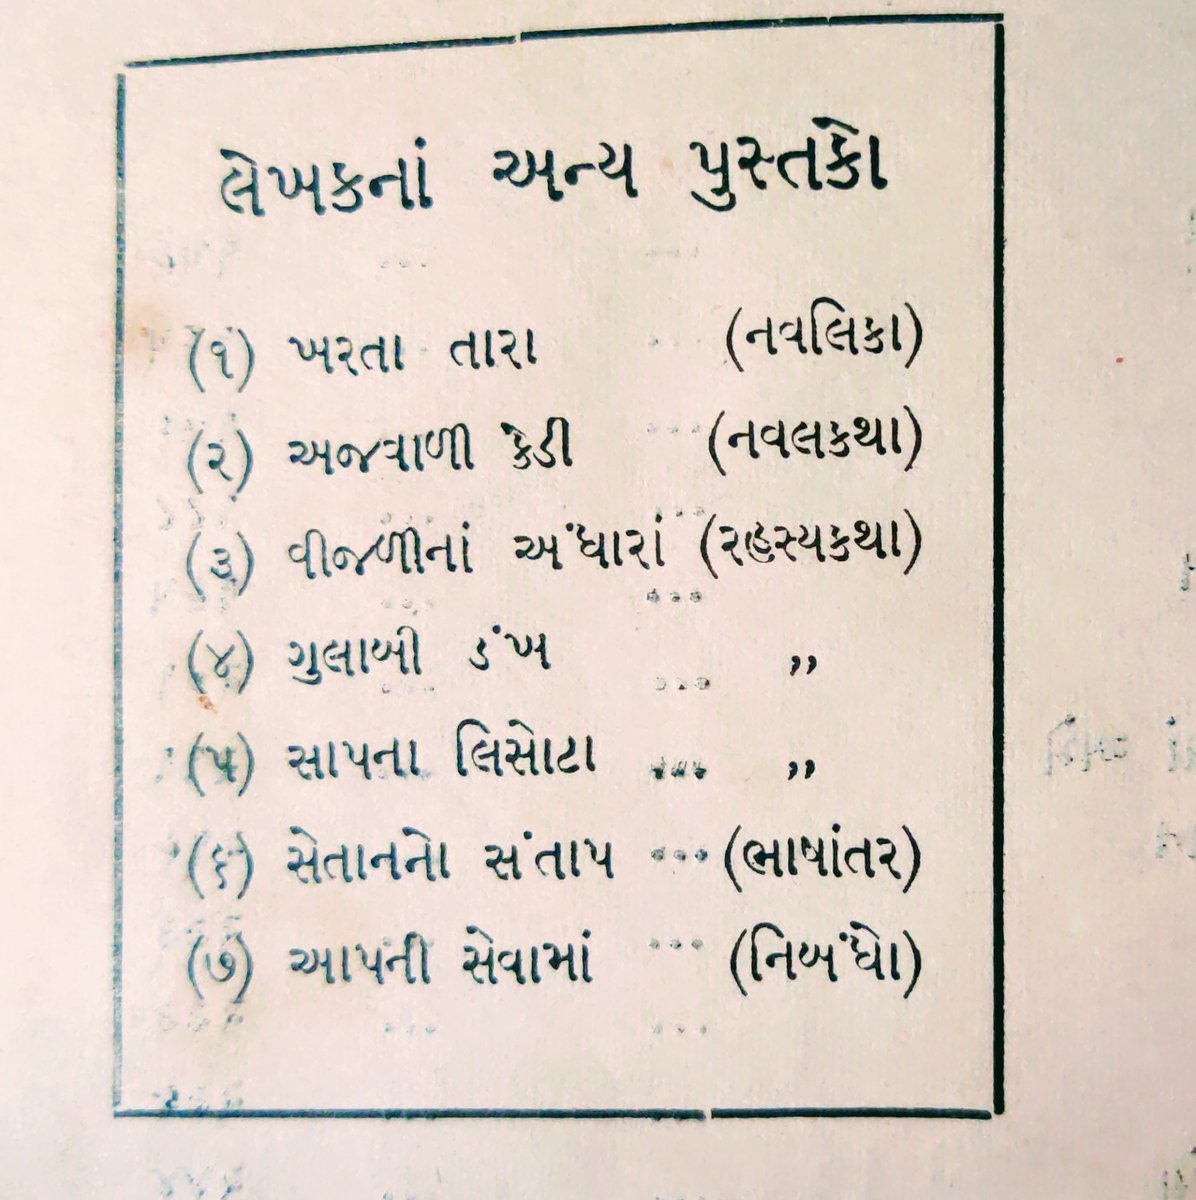 લેખકનાં અન્ય પુસ્તકો
(૧) ખરતા તારા ... (નવલિકા)
(૨) અજવાળી કેડી ... (નવલકથા)
(૩) વીજળીનાં અંધારાં (રહસ્યકથા)
(૪) ગુલાબી ડંખ ... ,,
(૫) સાપના લિસોટા ... ,,
(૬) સેતાનનો સંતાપ ... (ભાષાંતર)
(૭) આપની સેવામાં ... (નિબંધો)